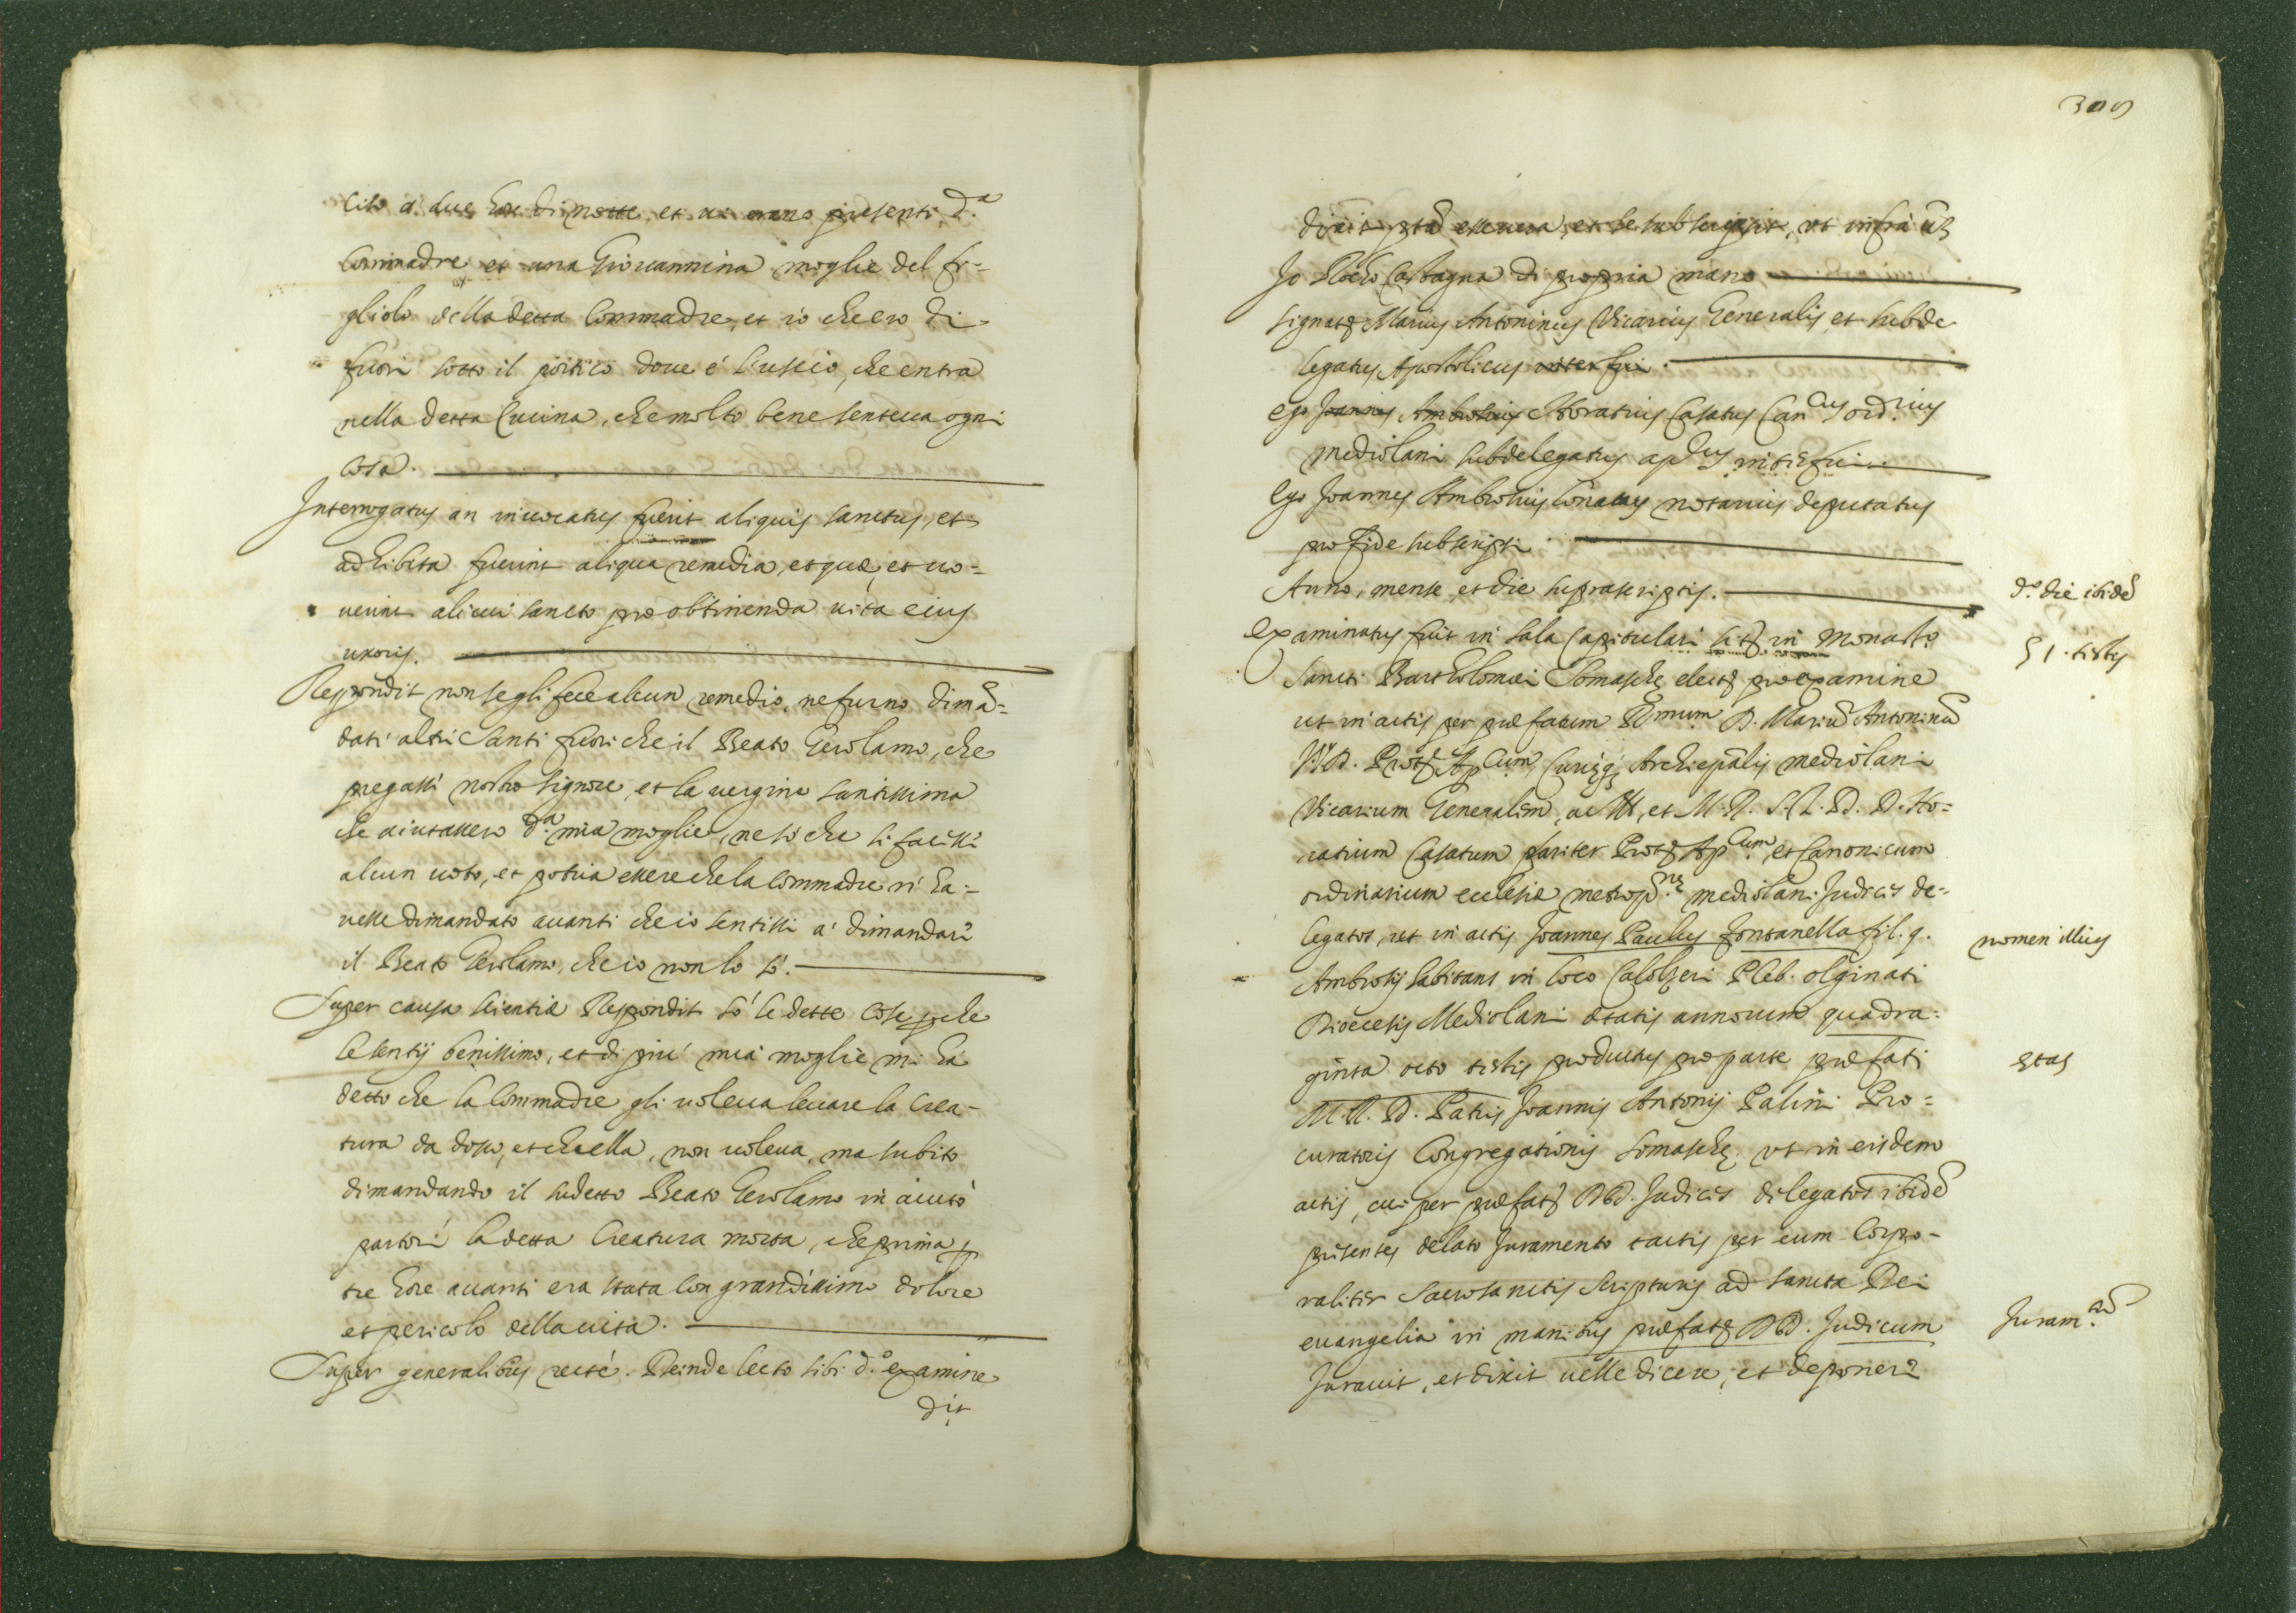 cito à due hore di notte, et ui erano presenti d.ª
Commadre et una Giouannina moglie del fi=
gliolo della detta Commadre, et io che ero di
fuori sotto il portico doue è l'uscio, che entra
nella detta Cucina, che molto bene senteua ogni
cosa.
Interrogatus an inuocatus fuerit aliquis sanctus, et
adhibita fuerint aliqua remedia, et quæ, et uo=
uerint alicui sancto pro obtinenda uita eius
uxoris.
Respondit non se gli fece alcun remedio, ne furno dimā=
dati altri Santi fuori che il Beato Gerolamo, che
pregassi nostro Signore, et la uergine santissima
che aiutassero d.ª mia moglie, ne so che si facessi
alcun uoto, et potria essere che la Commadre n'ha=
uesse dimandato auanti che io sentissi a' dimandare
il Beato Gerolamo, che io non lo sò.
Super causa scientiæ Respondit Sò le dette cose p che
le sentij benissimo, et di più mia moglie mi hà
detto che la Commadre gli uoleua leuare la Crea-
tura da dosso, et che ella, non uoleua, ma subito
dimandando il sudetto Beato Gerolamo in aiuto
partorì la detta Creatura morta, che prima p
tre hore auanti era stata con grandissimo dolore
et pericolo della uita.
Super generalibus recté. Deinde lecto sibi d.º examine
dix
309
dixit esse uera, et se subscripsit, ut infra
Jo Castagna di propria mano
Marius Antoninus Vicarius Generalis, et subde
legatus Apostolicus interfui.
Ego Joannes Ambrosius Horatius Casatus Can.cus ord.rius
mediolani subdelegatus ap.cus interfui.
Ego Joannes Ambrosius notarius deputatus
pro fide subscripsi
Anno, mense, et die suprascriptis.
d.º die ibidē
Examinatus fuit in sala Capitulari in Monast.º
51. testis
Sancti Bartholomæi Somaschę pro examine
ut in actis per præfatum D. Mariū Antoninū
Ap.cum, Archiepālis mediolani
Vicarium Generalem, ac et M. R. J. D. D. Ho=
ratium Casatum pariter Ap.cum, et Canonicum
ordinarium ecclesiæ mediolani Judices de=
legatos, ut in actis Joannes Paulus Fontanella fil. q.
nomen illius
Ambrosij habitans in loco Calolzeri Pleb. olginati
Diocesis Mediolani ætatis annorum quadra=
ginta octo testis productus pro parte præfati
ętas
M. R. D. Patris Joannis Antonij Palini Pro=
curatoris Congregationis Somaschę, ut in eisdem
actis, cui per præfatos DD. Judices delegatos ibidē
presentes delato juramento tactis per eum Corpo-
raliter Sacrosanctis scripturis ad sancta Dei
euangelia in manibus DD. Judicum
Juram.
Jurauit, et dixit uelle dicere, et deponere